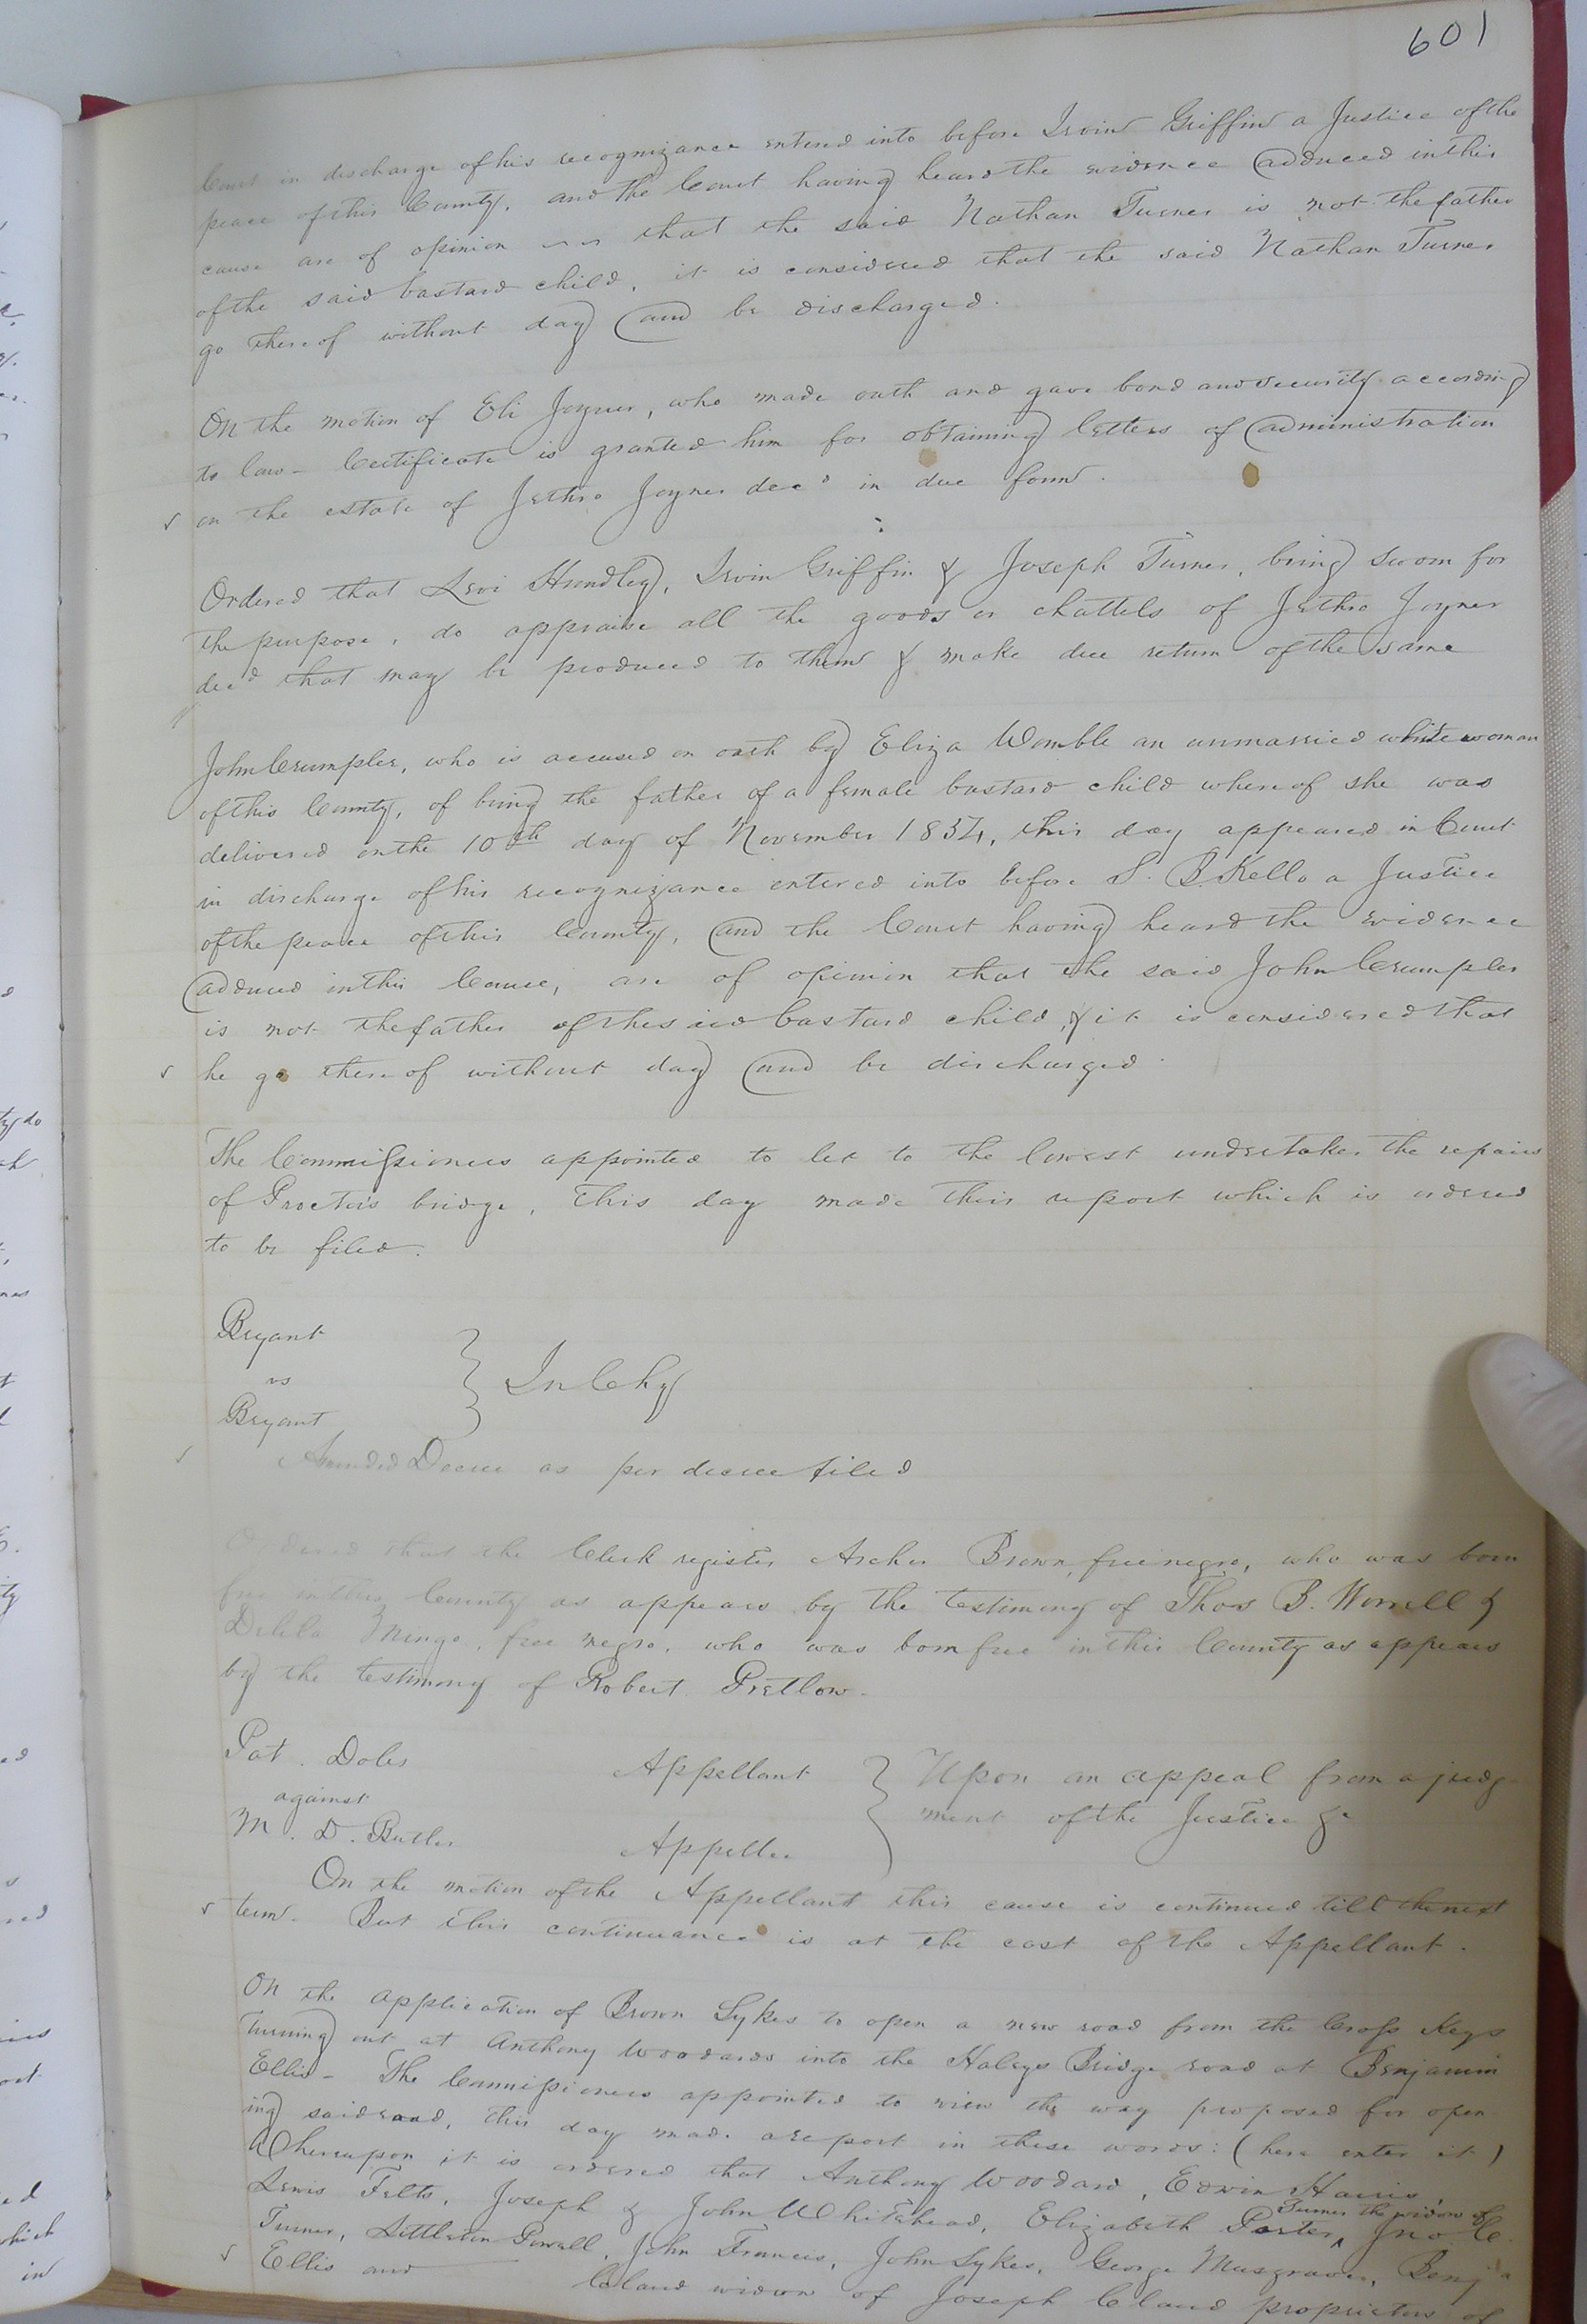 601
Court in discharge of his recognizance entered into before Irvin Griffin a Justice of the
peace of this County, and the Court having heard the evidence adduced in this
cause are of opinion that the said Nathan Turner is not the father
of the said bastard child, it is considered that the said Nathan Turner
go thereof without day and be discharged.
On the motion of Eli Joyner, who made oath and gave bond and security according
to law - Certificate is granted him for obtaining letters of administration
on the estate of Jethro Joyner decd in due form.
Ordered that Levi Hundley, Irvin Griffin & Joseph Turner, being sworn for
the purpose, do appraise all the goods or chattels of Jethro Joyner
decd that may be produced to them & make due return of the same
John Crumpler, who is accused on oath by Eliza Womble an unmarried white woman
of this County, of being the father of a female bastard child whereof she was
delivered on the 10th day of November 1834, this day appeared in Court
in discharge of his recognizance entered into before S. B. Kello a Justice
of the peace of this County, and the Court having heard the evidence
adduced in this Cause, are of opinion that the said John Crumpler
is not the father of the said bastard child, & it is considered that
he go thereof without day and be discharged.
The Commissioners appointed to let to the lowest undertaker the repairs
of Proctor's bridge, This day made their report which is ordered
to be filed.
Bryant
vs
Bryant
In Chy
Amended Decree as per decree filed
Ordered that the Clerk register Archer Brown, free negro, who was born
free in this County as appears by the testimony of Thos B. Worrell &
Delila Mingo, free negro, who was born free in this County as appears
by the testimony of Robert Pretlow.
Pat. Doles Appellant
against
M. D. Butler Appellee
Upon an appeal from a judg-
ment of the Justice &c
On the motion of the Appellant this cause is continued till the next
term. But this continuance is at the cost of the Appellant.
On the application of Brown Sykes to open a new road from the Cross Keys
turning out at Anthony Woodards into the Haleys Bridge road at Benjamin
Ellis - The Commissioners appointed to view the way proposed for open
ing said road, this day made a report in these words: (here enter it)
Whereupon it is ordered that Anthony Woodard, Edwin Harris
Lewis Felts, Joseph & John Whitehead, Elizabeth Porter, Turner the widow of Jno C.
Turner, Littleton Powell, John Francis, John Sykes, George Musgrave, Benja
Ellis and Claud widow of Joseph Claud proprietors of